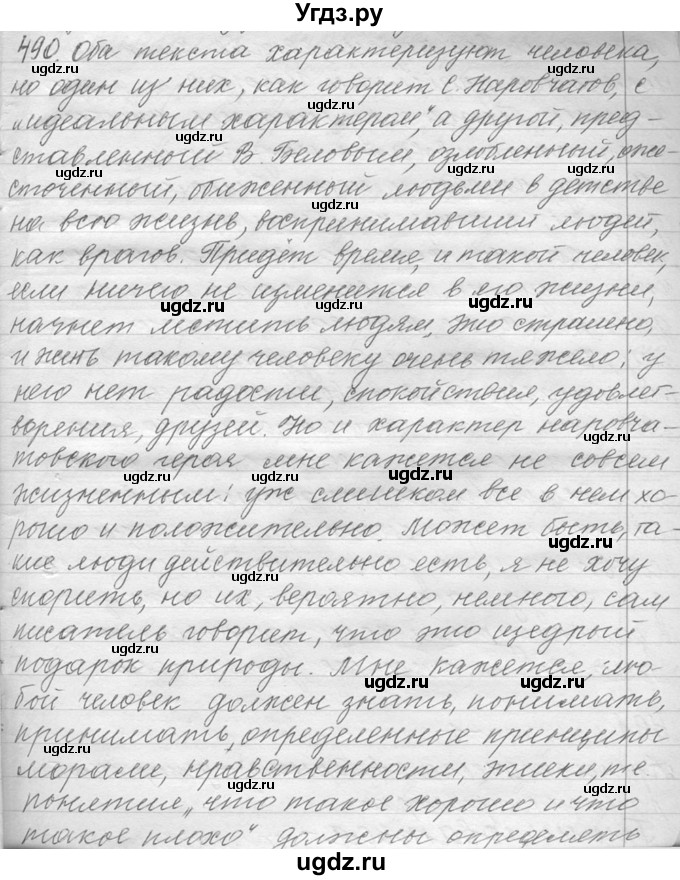 Угдз.ру
490. Оба текста характеризуют человека,
но один из них, как говорит С. Наровчатов, с
„идеальным характером", а другой, пред-
ставленный В. Беловым, озлобленный, оже-
сточенный, обиженный людьми в детстве
на всю жизнь, воспринимавший людей,
как врагов. Придёт время, и такой человек,
если ничего не изменится в его жизни,
начнет мстить людям, это страшно,
и жить такому человеку очень тяжело: у
него нет радости, спокойствия, удовлет-
ворения, друзей. Но и характер наровча-
товского героя мне кажется не совсем
жизненным: уж слишком все в нем хо-
рошо и положительно. Может быть, та-
кие люди действительно есть, я не хочу
спорить, но их, вероятно, немного, сам
писатель говорит, что это щедрый
подарок природы. Мне кажется, лю-
бой человек должен знать, понимать,
принимать, определенные принципы
морали, нравственности, этики, т.е.
понятия „что такое хорошо и что
такое плохо" должны определять
ugdz.ru